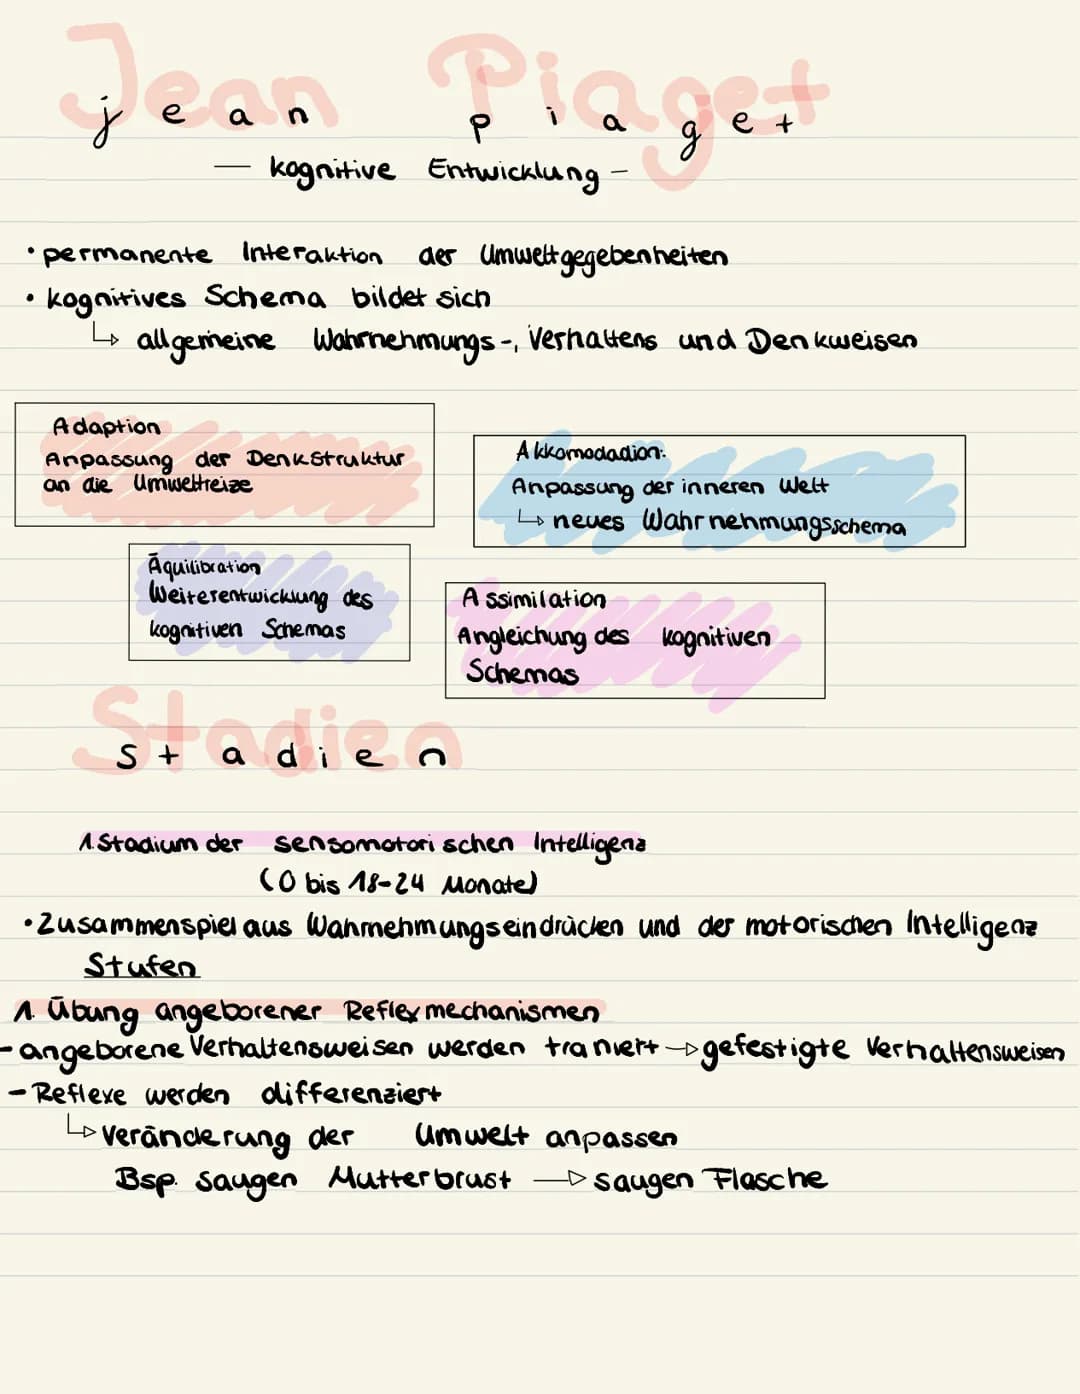 Jean Piaget
jean piaget
— kognitive Entwicklung –
• permanente Interaktion der Umweltgegebenheiten
• kognitives Schema bildet sich
↳ allgemeine Wahrnehmungs-, Verhaltens und Denkweisen
Adaption
Anpassung der Denkstruktur
an die Umweltreize
Akkomodadion:
Anpassung der inneren Welt
↳ neues Wahrnehmungsschema
Äquilibration
Weiterentwicklung des
kognitiven Schemas
Assimilation
Angleichung des kognitiven
Schemas
Stadien
stadien
1. Stadium der sensomotorischen Intelligenz
(0 bis 18-24 Monate)
• Zusammenspiel aus Wahrnehmungseindrücken und der motorischen Intelligenz
Stufen
1. Übung angeborener Reflexmechanismen
- angeborene Verhaltensweisen werden traniert → gefestigte Verhaltensweisen
- Reflexe werden differenziert
↳ Veränderung der Umwelt anpassen
Bsp. saugen Mutterbrust → saugen Flasche